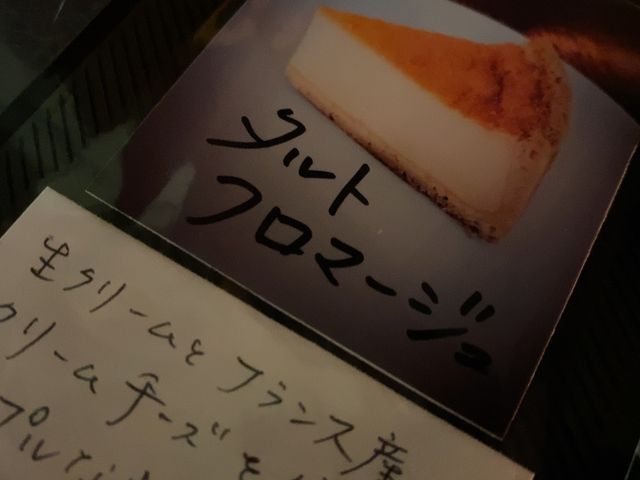 タルト
フロマージュ
生クリームとフランス産
クリームチーズを